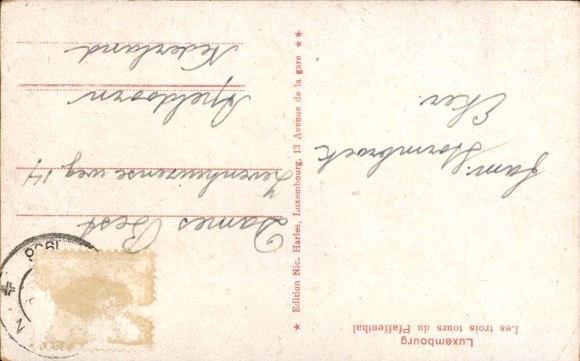 Luxembourg
Les trois tours du Pfaffenthal
Fam. Hornbrock
Eker
★ Edition Nic. Harles, Luxembourg, 13 Avenue de la gare ★★
Dames Best
Zevenhuizense weg 14
Apeldoorn
Nederland